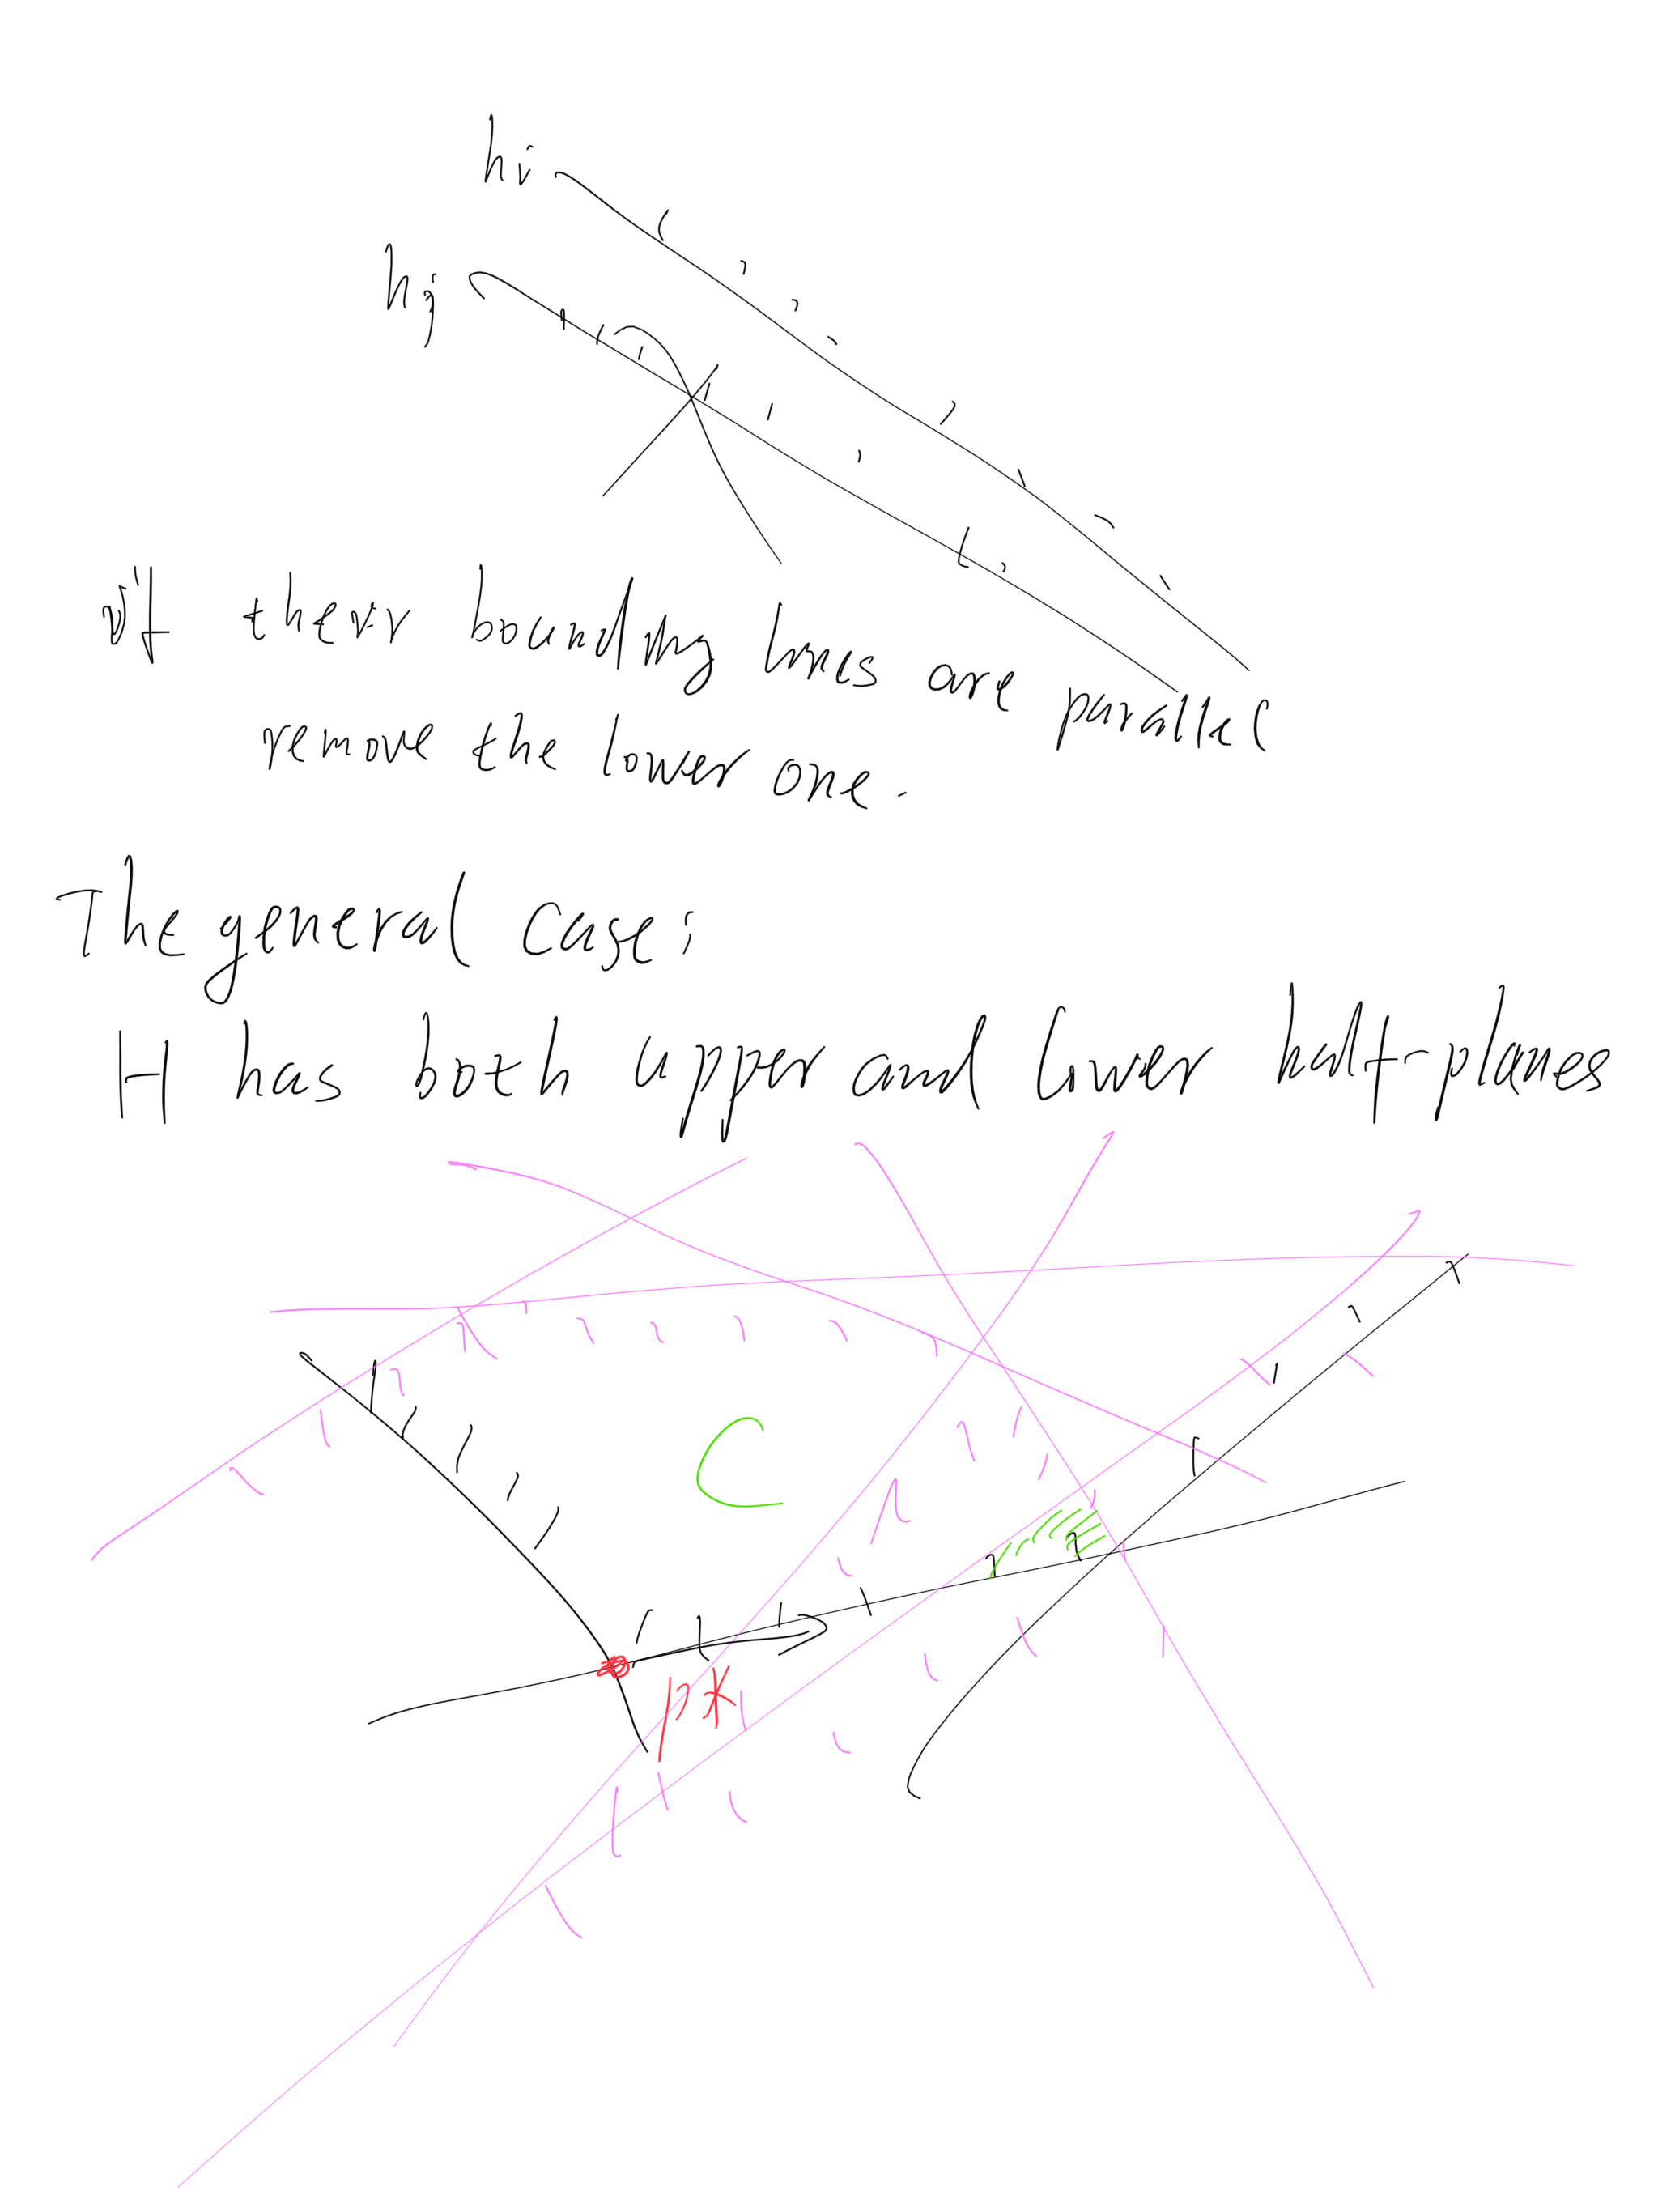 hi
hj
if their bounding lines are parallel
remove the lower one.
The general case:
H has both upper and lower half-planes
C
p*